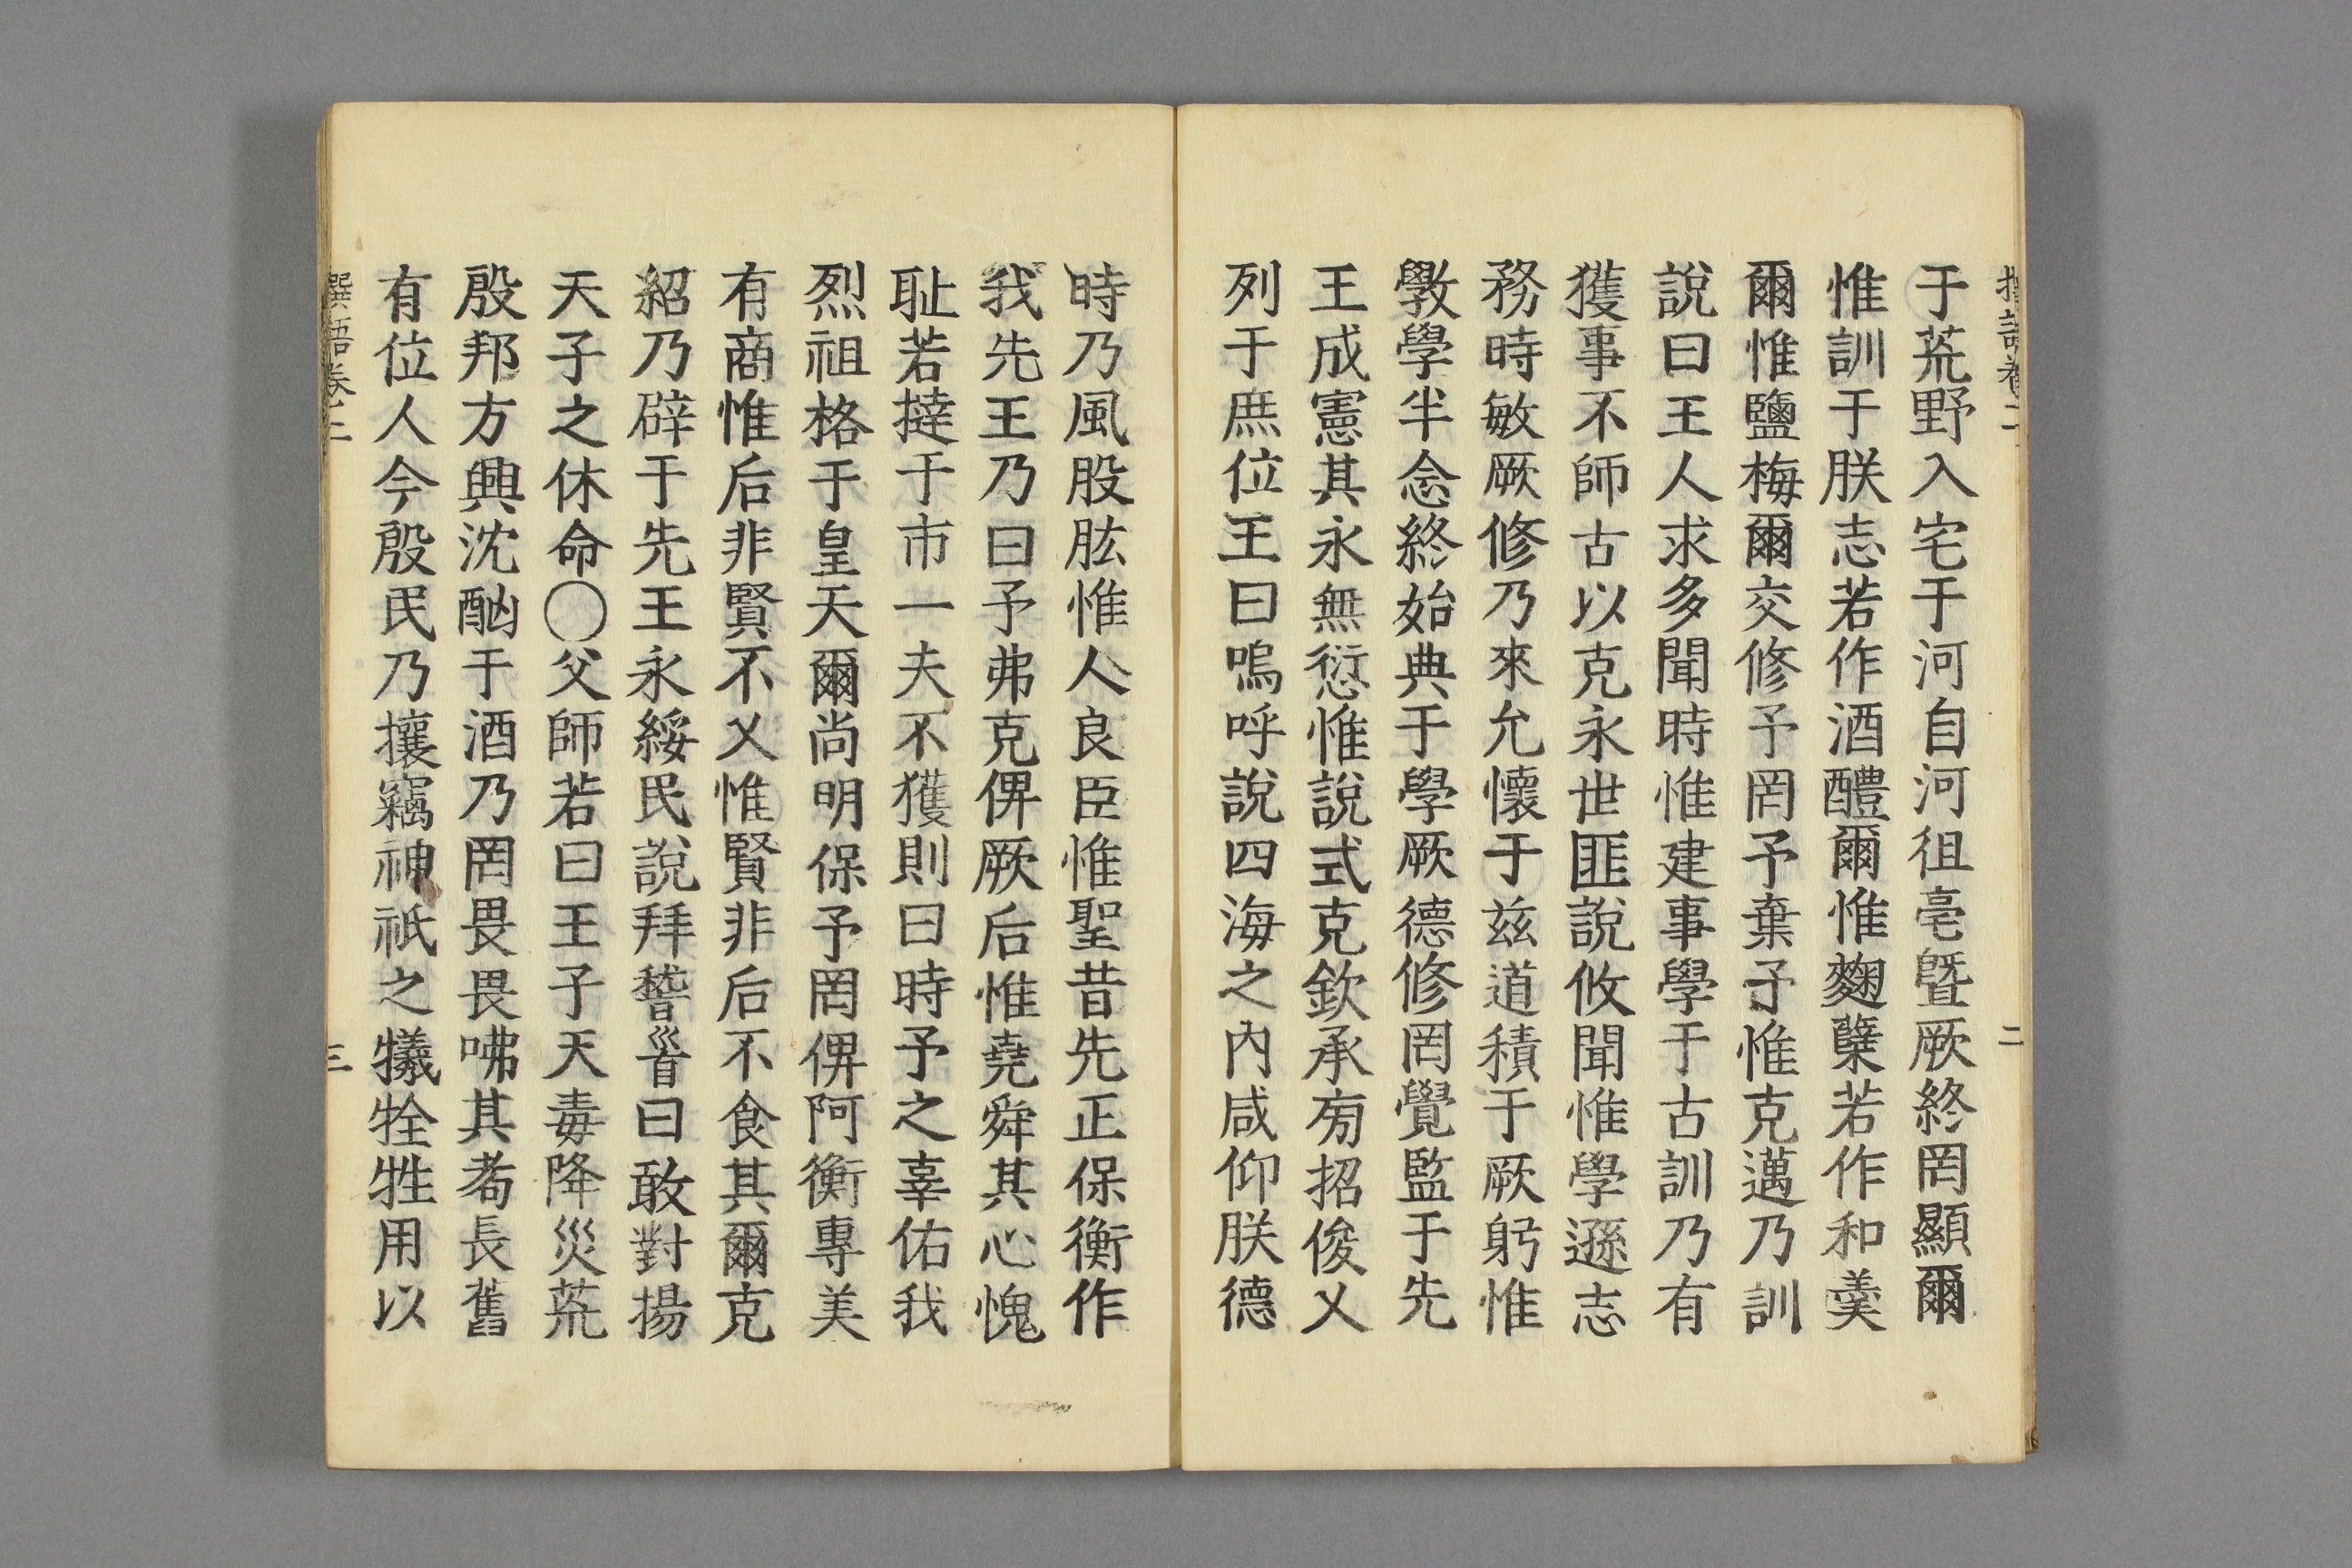 于荒野入宅于河自河徂亳曁厥終罔顯爾
惟訓于朕志若作酒醴爾惟麴糱若作和羹
爾惟鹽梅爾交修予罔予棄予惟克邁乃訓
說曰王人求多聞時惟建事學于古訓乃有
獲事不師古以克永世匪說攸聞惟學遜志
務時敏厥修乃來允懷于茲道積于厥躬惟
斆學半念終始典于學厥德修罔覺監于先
王成憲其永無愆惟說式克欽承旁招俊乂
列于庶位王曰嗚呼說四海之內咸仰朕德
時乃風股肱惟人良臣惟聖昔先正保衡作
我先王乃曰予弗克俾厥后惟堯舜其心愧
耻若撻于市一夫不獲則曰時予之辜佑我
烈祖格于皇天爾尚明保予罔俾阿衡專美
有商惟后非賢不乂惟賢非后不食其爾克
紹乃辟于先王永綏民說拜䭫首曰敢對揚
天子之休命〇父師若曰王子天毒降災荒
殷邦方興沈酗于酒乃罔畏畏咈其耇長舊
有位人今殷民乃攘竊神祇之犧牷牲用以
撰語卷二 三